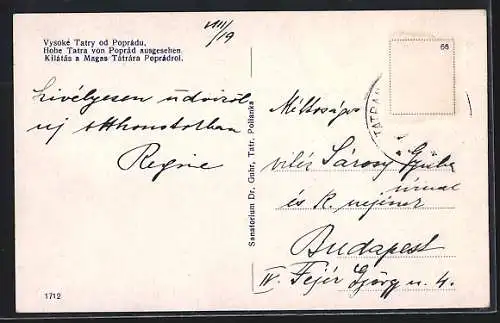 VIII/19
Vysoké Tatry od Poprádu.
Hohe Tatra von Poprád ausgesehen.
Kilátás a Magas Tátrára Poprádról.
Szívélyesen üdvözöl
új otthonotokban
Regine
Sanatorium Dr. Guhr, Tatr. Polianka
66
TATRA
Méltóságos
vitéz Sárosy Gyula
úrnak
és K. nejének
Budapest
IV. Fejér György u. 4.
1712